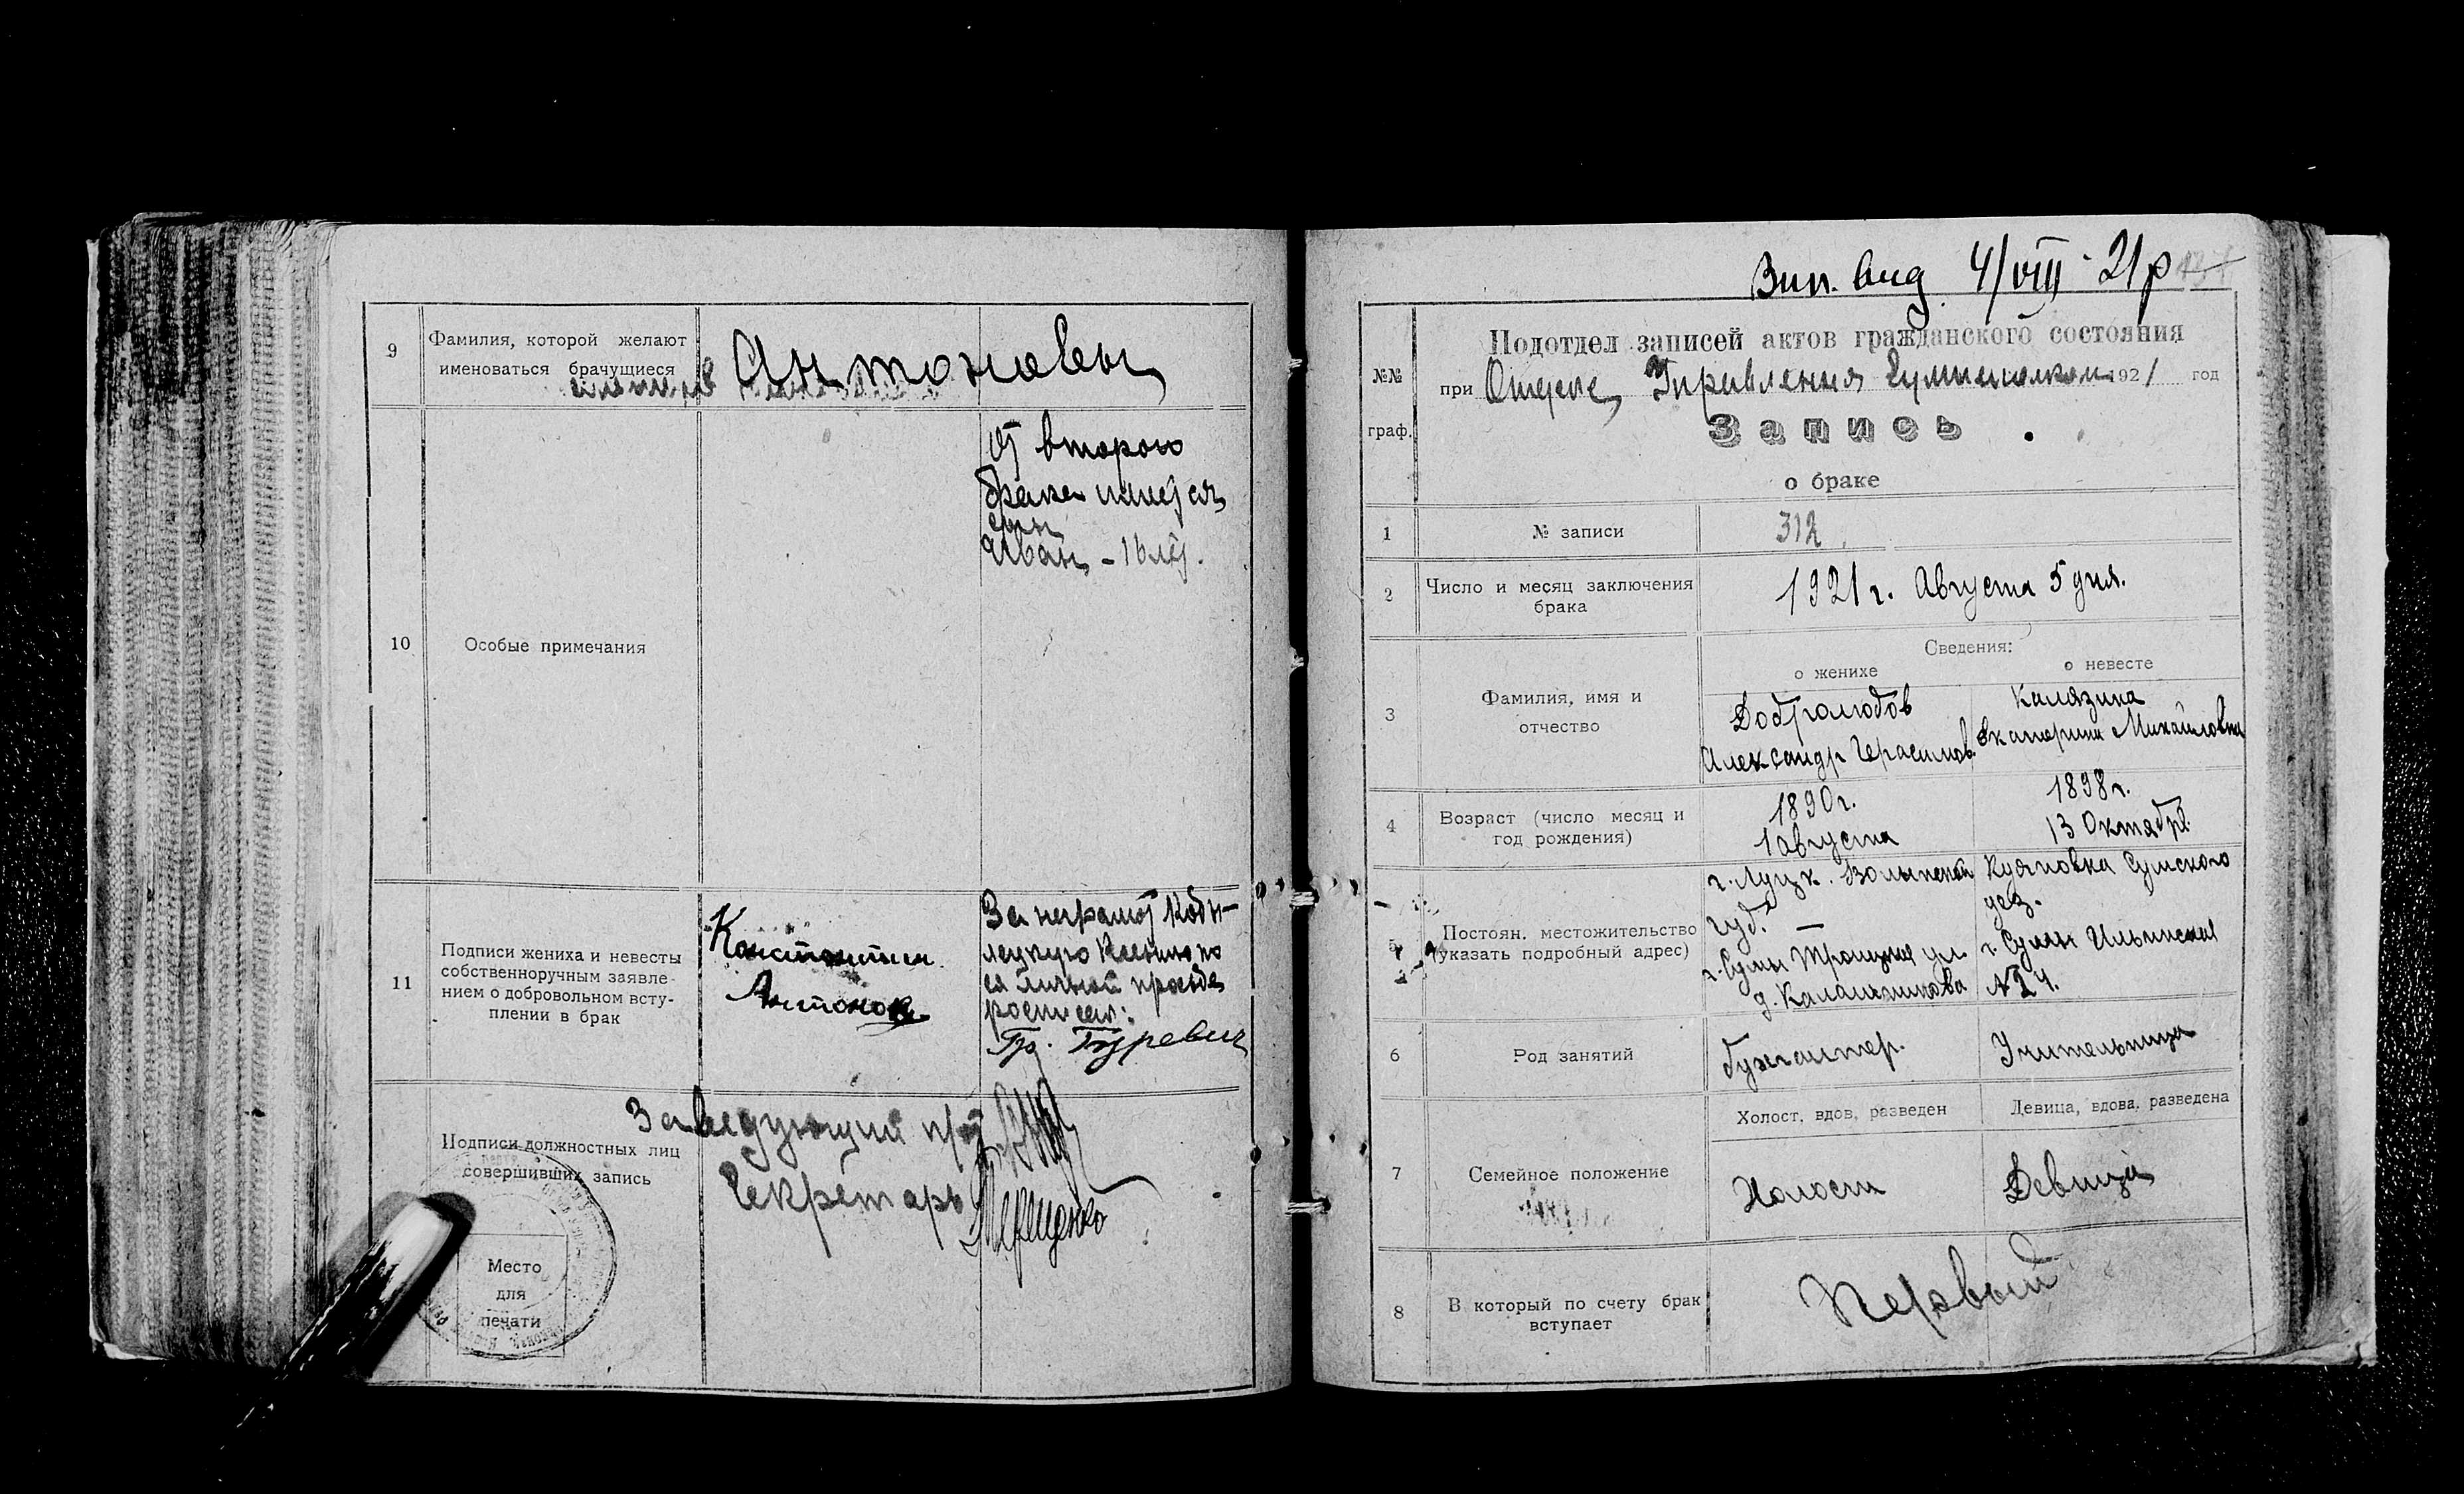 9
Фамилия, которой желают
именоваться брачущиеся
Антоновы
10
Особые примечания
От второго
брака имеется
сын
Иван - 16 лет.
11
Подписи жениха и невесты
собственноручным заявле-
нием о добровольном всту-
плении в брак
Константин
Антонов
За неграмот Кобы-
лецкую Ксению по
ея личной просьбе
росписал:
Гр. Гуревич
Подписи должностных лиц
совершивших запись
Заведующий п/от
Секретарь Терещенко
Место
для
печати
Вип. вид 4/VIII - 21 р
№№
граф.
Подотдел записей актов гражданского состояния
при Отделе Управления 1921 год
Запись
о браке
1
№ записи
312
2
Число и месяц заключения
брака
1921 г. Августа 5 дня.
Сведения:
о женихе
о невесте
3
Фамилия, имя и
отчество
Добролюбов
Александр Герасимов.
Калязина
Екатерина Михайловна
4
Возраст (число месяц и
год рождения)
1890 г.
1 августа
1898 г.
13 Октябр.
5
Постоян. местожительство
(указать подробный адрес)
г. Луцк. Волынской
губ.
г. Сумы Троицкая ул
д. Калашникова
Сумского
уез.
г. Сумы Ильинская
№ 24.
6
Род занятий
бухгалтер.
Учительница
7
Семейное положение
Холост, вдов, разведен
Девица, вдова, разведена
Холост
Девица
8
В который по счету брак
вступает
Первый